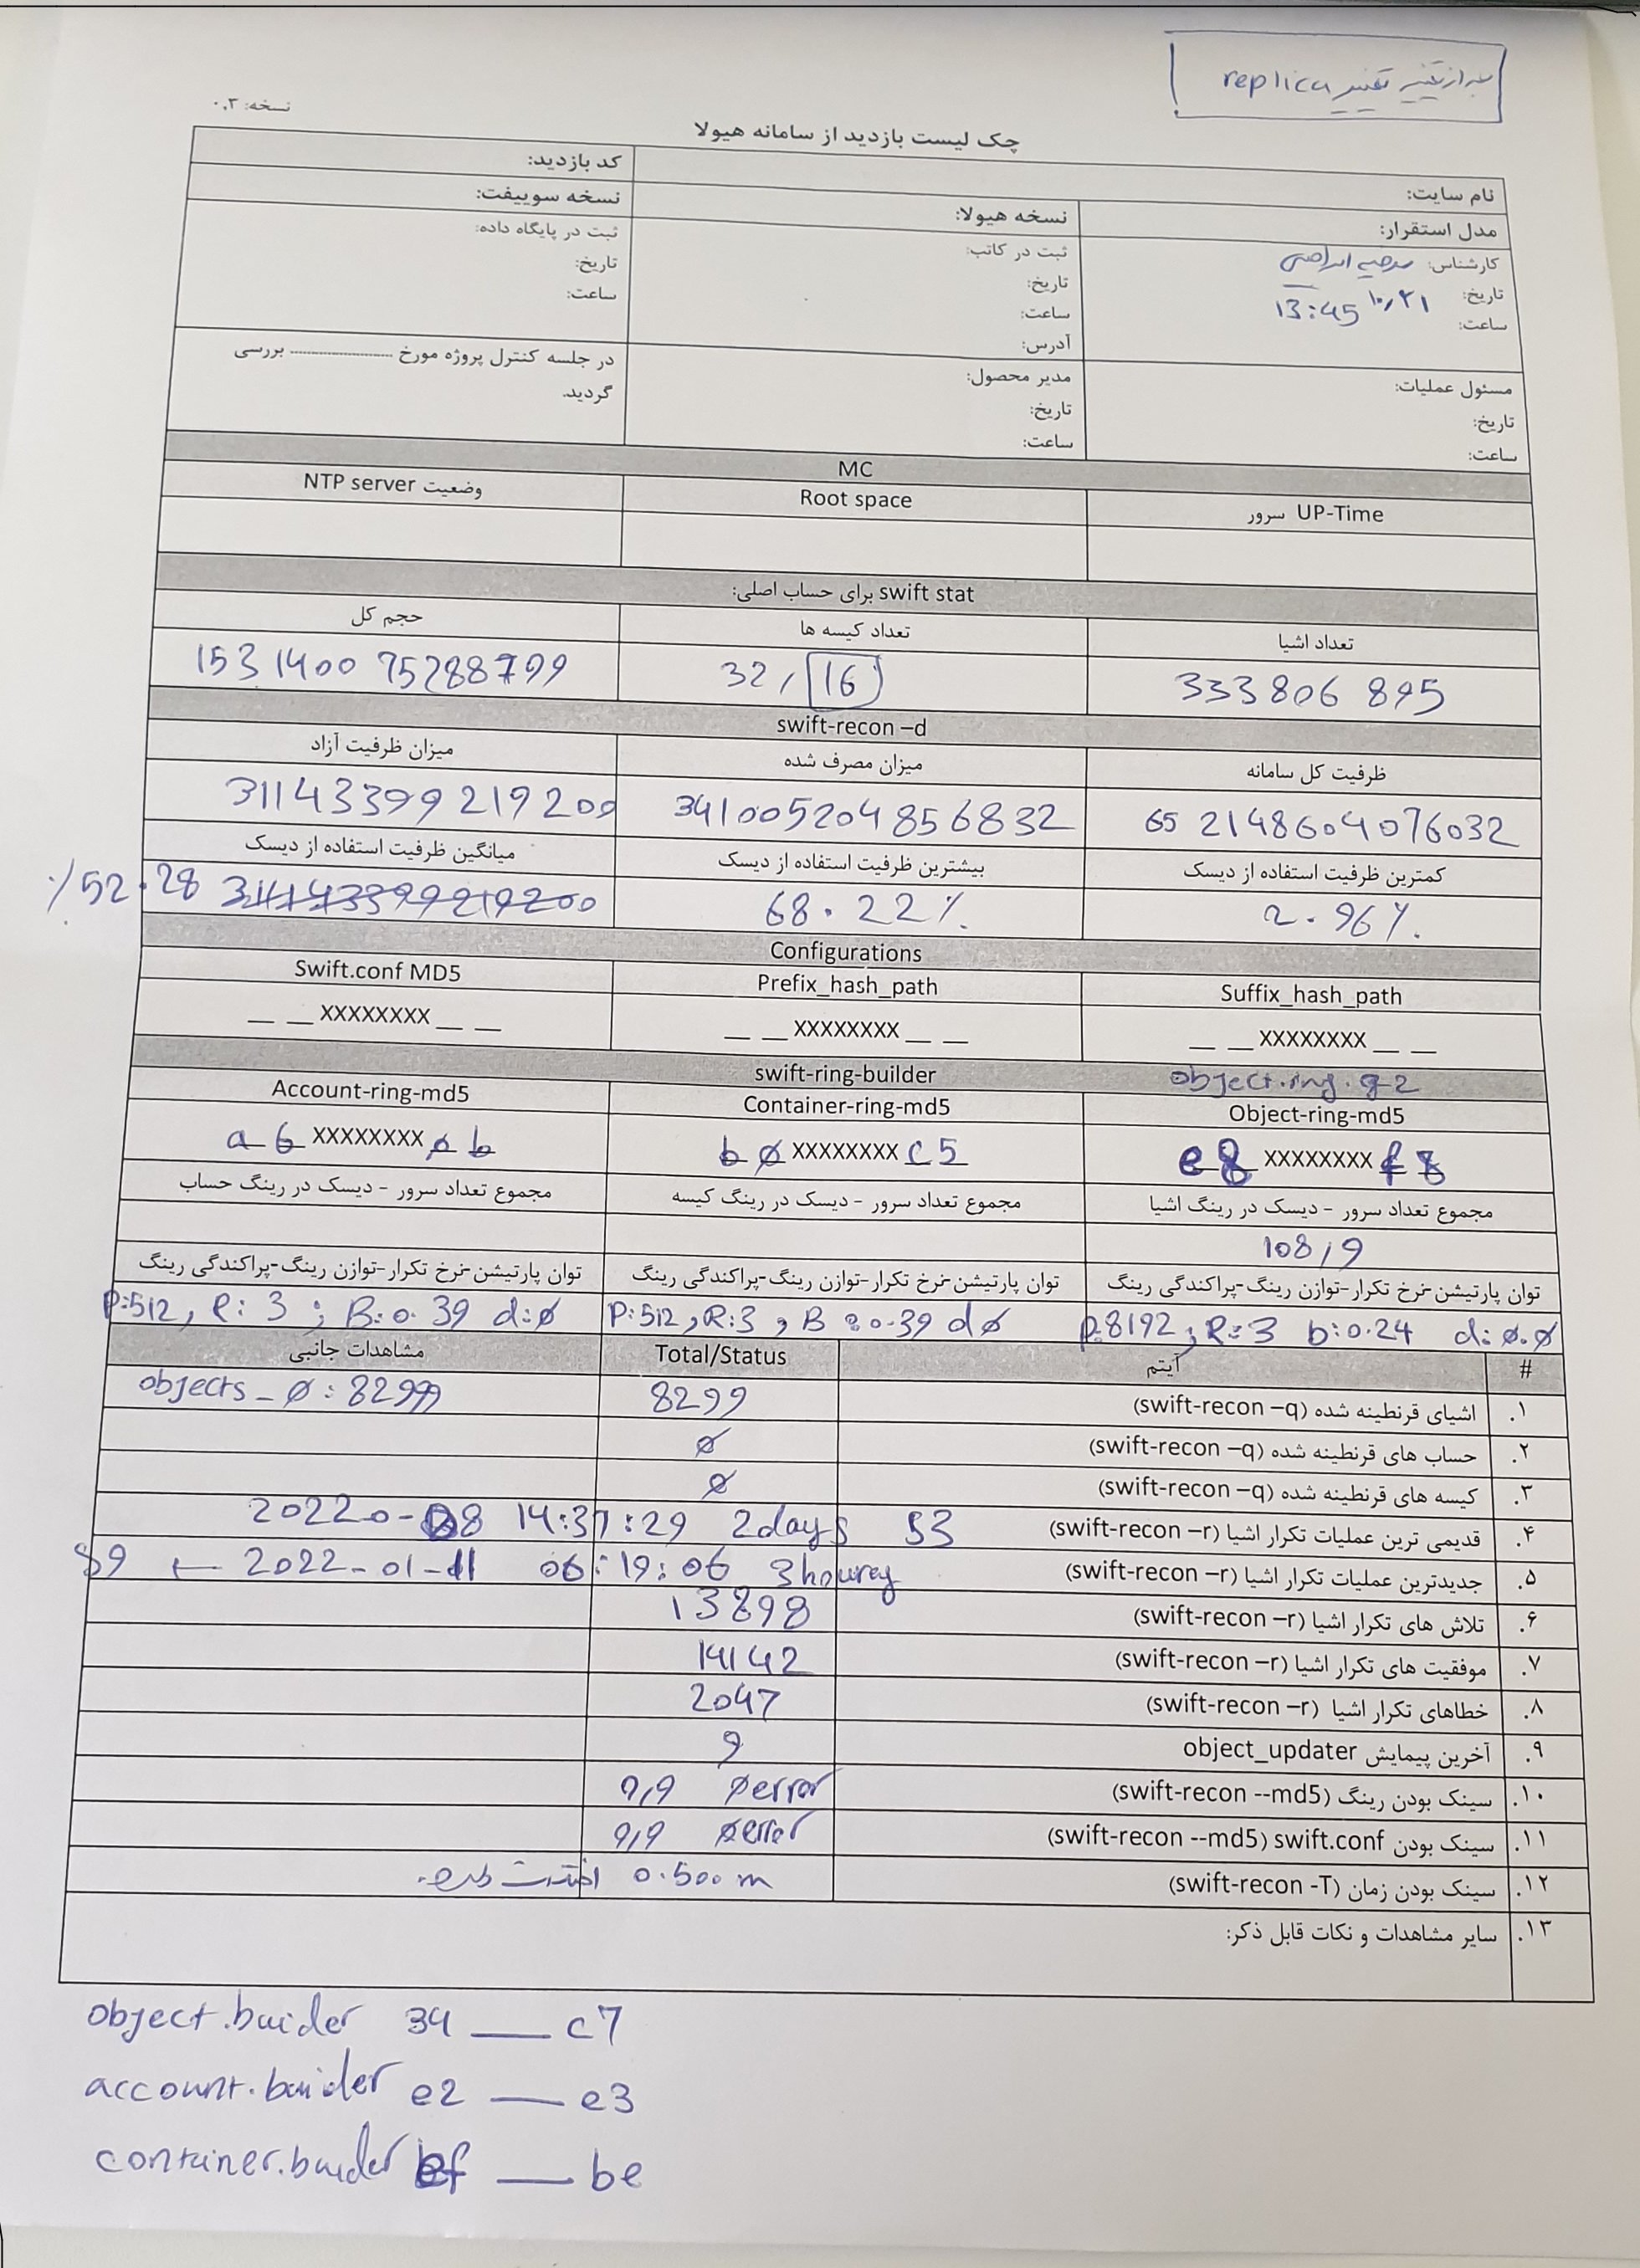 بعد از تغییر تغییر replica
نسخه: ۰.۳
چک لیست بازدید از سامانه هیولا
نام سایت: کد بازدید:
مدل استقرار: نسخه هیولا: نسخه سوییفت:
کارشناس: ثبت در کاتب: ثبت در پایگاه داده:
تاریخ: ۱۰/۲۱ تاریخ: تاریخ:
ساعت: 13:45 ساعت: ساعت:
آدرس:
مسئول عملیات: مدیر محصول: در جلسه کنترل پروژه مورخ ........................ بررسی
تاریخ: تاریخ: گردید.
ساعت: ساعت:
MC
UP-Time سرور Root space وضعیت NTP server
swift stat برای حساب اصلی:
تعداد اشیا تعداد کیسه ها حجم کل
333806 895 32, 16 1531400 75288799
swift-recon –d
ظرفیت کل سامانه میزان مصرف شده میزان ظرفیت آزاد
65 2148604076032 341005204856832 31143399219200
کمترین ظرفیت استفاده از دیسک بیشترین ظرفیت استفاده از دیسک میانگین ظرفیت استفاده از دیسک
2.96% 68.22% %52.28
Configurations
Suffix_hash_path Prefix_hash_path Swift.conf MD5
__ __ XXXXXXXX __ __ __ __ XXXXXXXX __ __ __ __ XXXXXXXX __ __
swift-ring-builder object.ring.gz
Object-ring-md5 Container-ring-md5 Account-ring-md5
e8 XXXXXXXX f8 b0 XXXXXXXX c5 a6 XXXXXXXX 0b
مجموع تعداد سرور – دیسک در رینگ اشیا مجموع تعداد سرور – دیسک در رینگ کیسه مجموع تعداد سرور – دیسک در رینگ حساب
108,9
توان پارتیشن-نرخ تکرار-توازن رینگ-پراکندگی رینگ توان پارتیشن-نرخ تکرار-توازن رینگ-پراکندگی رینگ توان پارتیشن-نرخ تکرار-توازن رینگ-پراکندگی رینگ
P:8192, R:3 b:0.24 d:0.0 P:512, R:3, B:0.39 d0 P:512, R:3; B:0.39 d:0
# آیتم Total/Status مشاهدات جانبی
۱. اشیای قرنطینه شده (swift-recon –q) 8299 objects_0: 8299
۲. حساب های قرنطینه شده (swift-recon –q) 0
۳. کیسه های قرنطینه شده (swift-recon –q) 0
۴. قدیمی ترین عملیات تکرار اشیا (swift-recon –r) 20220-08 14:37:29 2days S3
۵. جدیدترین عملیات تکرار اشیا (swift-recon –r) S9 ← 2022-01-11 06:19:06
۶. تلاش های تکرار اشیا (swift-recon –r) 13898
۷. موفقیت های تکرار اشیا (swift-recon –r) 14142
۸. خطاهای تکرار اشیا (swift-recon –r) 2047
۹. آخرین پیمایش object_updater 9
۱۰. سینک بودن رینگ (swift-recon --md5) 9,9 0error
۱۱. سینک بودن swift.conf (swift-recon --md5) 9,9 0error
۱۲. سینک بودن زمان (swift-recon -T) 0.500 m
۱۳. سایر مشاهدات و نکات قابل ذکر:
object.buider 34 ___ c7
account.buider e2 ___ e3
container.buider bf ___ be